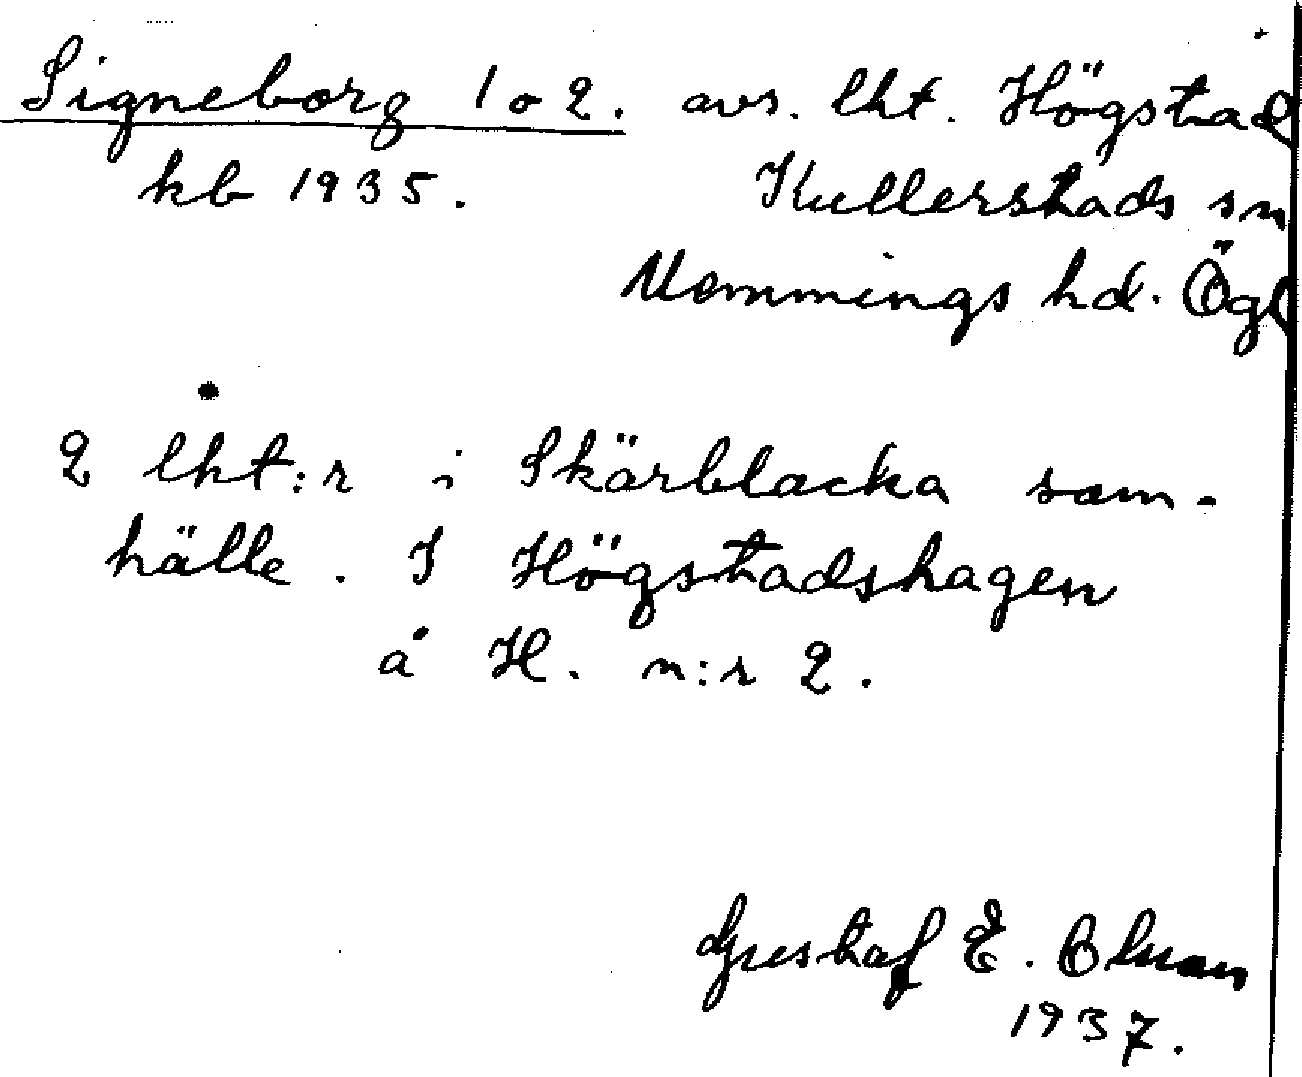 Signeborg 1 o 2. avs. lht. Högstad
kb 1935. Kullerstads sn
Memmings hd. Ögl
2 lht:r i Skärblacka sam-
hälle. I Högstadshagen
å H. n:r 2.
Gustaf E. Olson
1937.